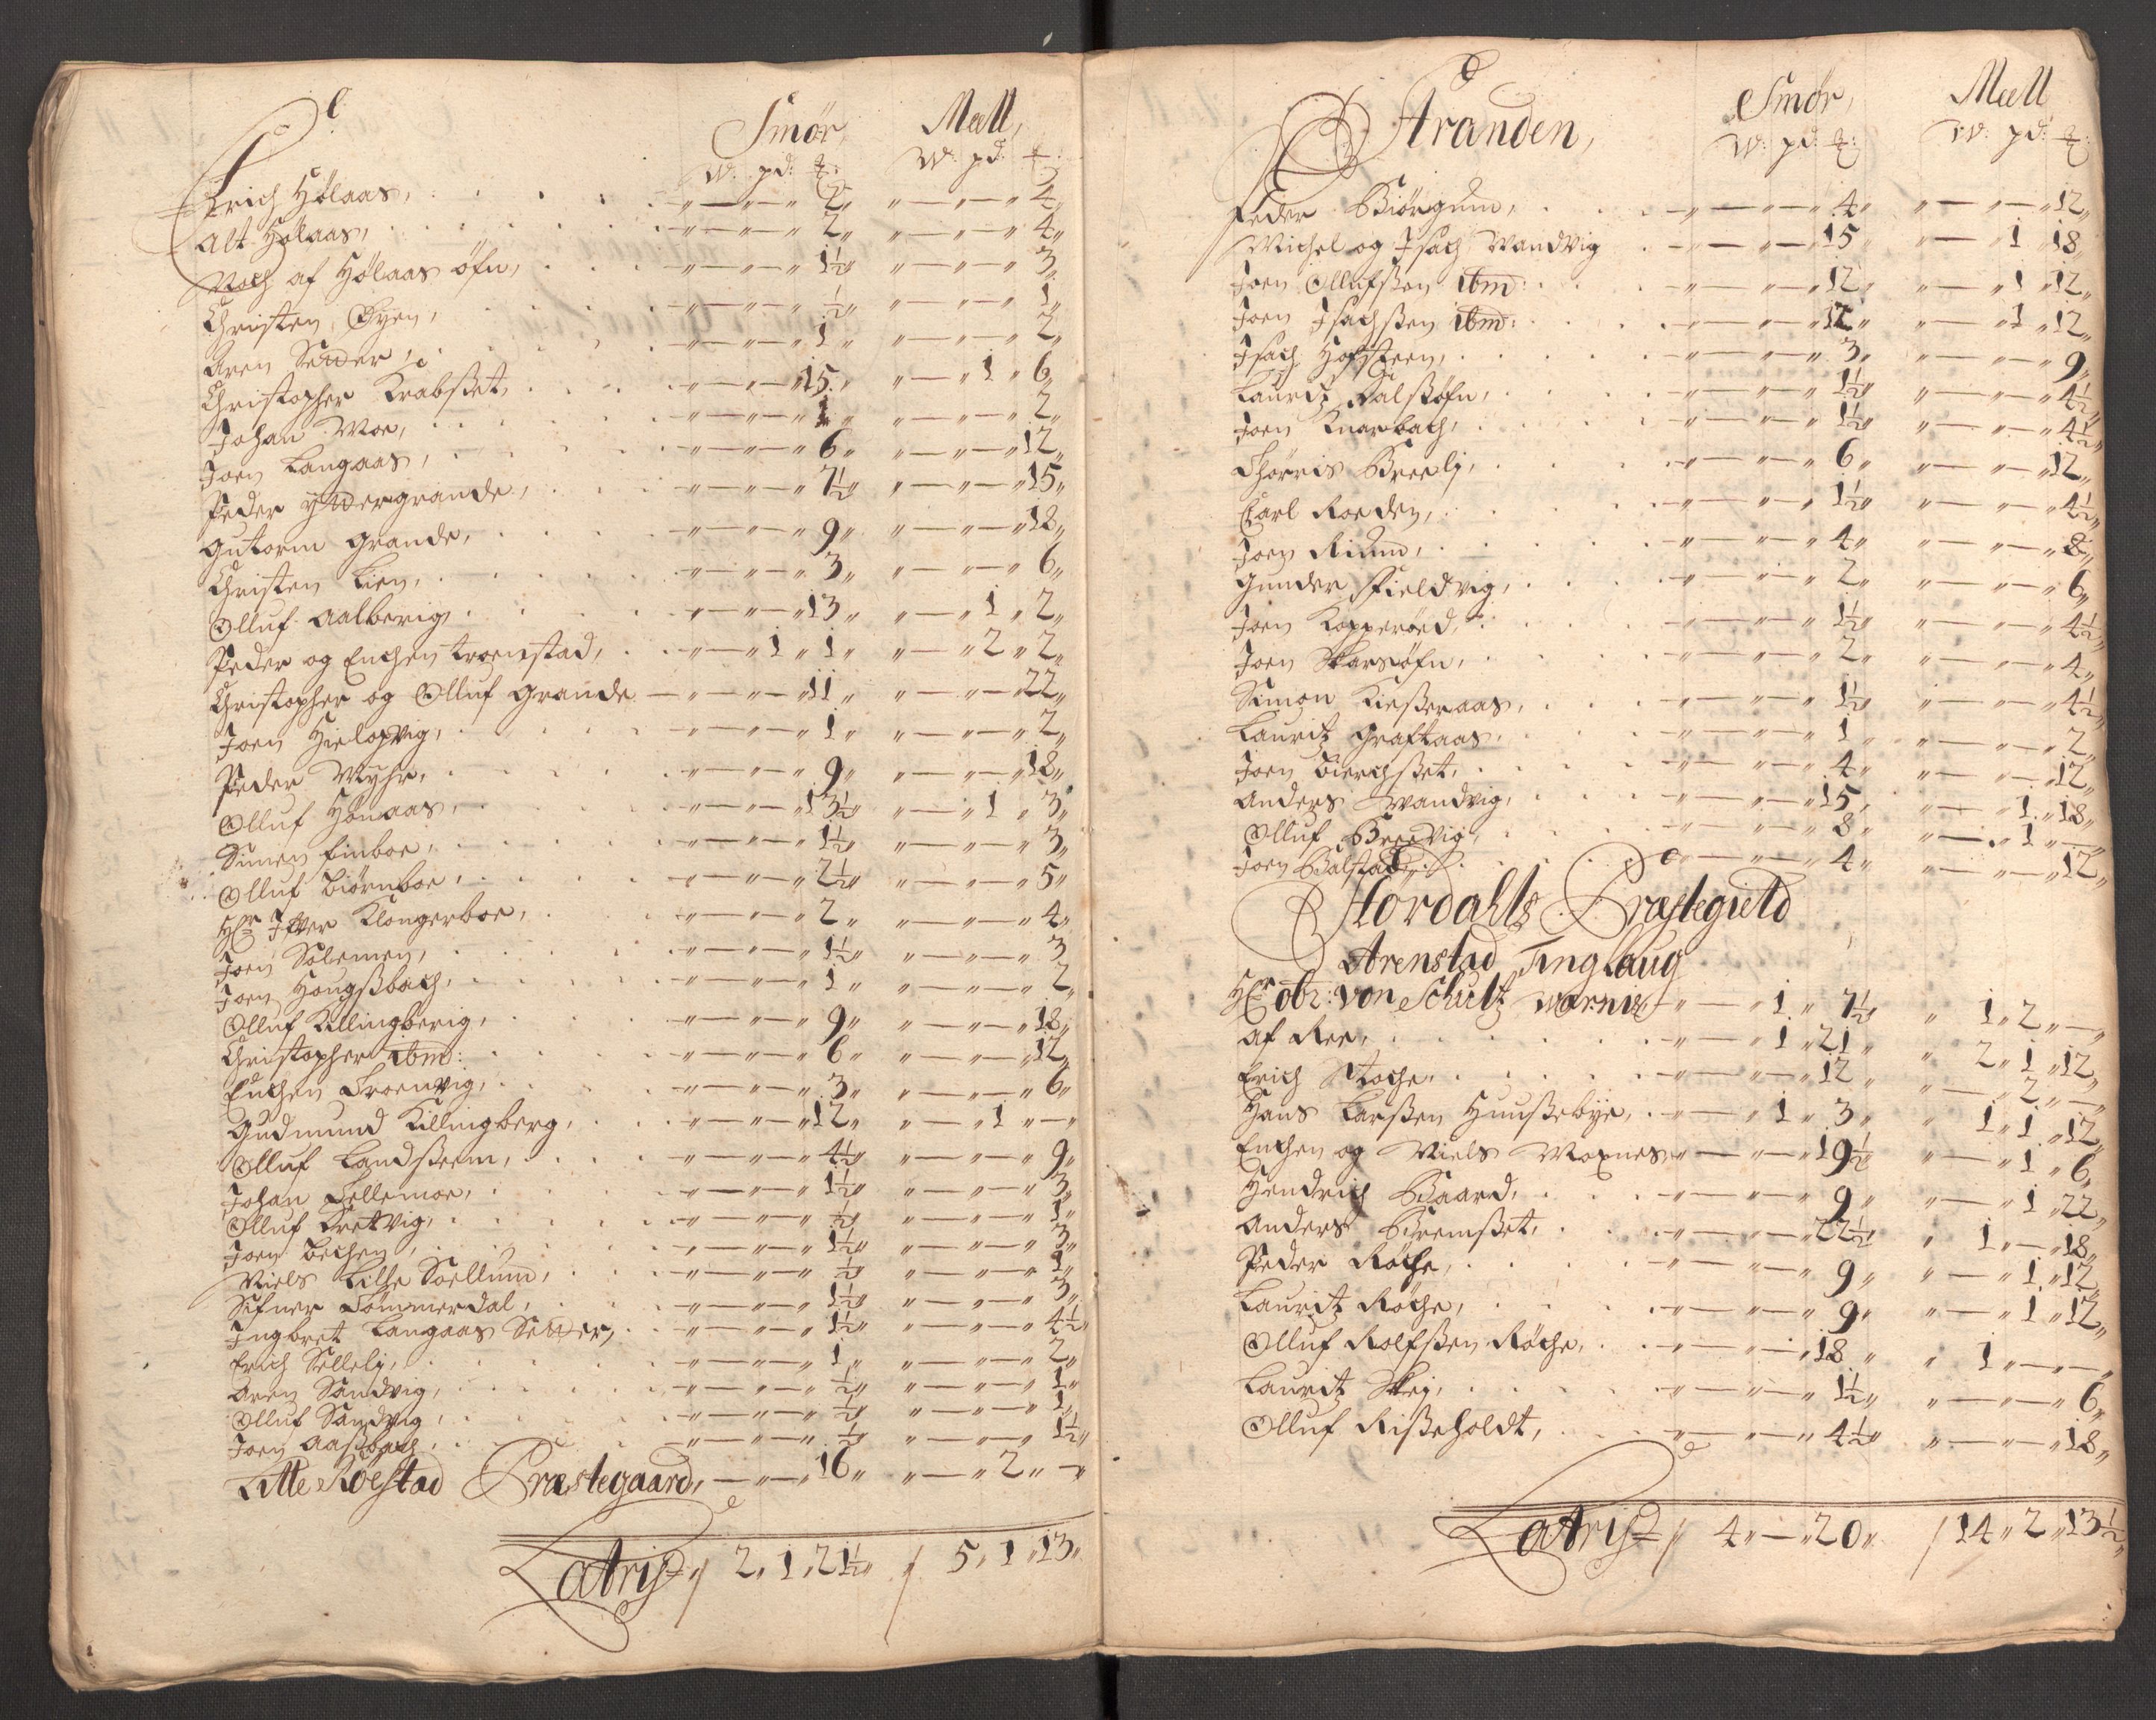 Smør, Mæll,
W: pd: ℔: W: pd: ℔:
Erich Hølaas, „—„—„ 2„ „—„—„ 4„
Alt Hølaas, „—„—„ 2„ „—„—„ 4„
Noch af Hølaas øfn, „—„—„ 1½„ „—„—„ 3„
Christen Øyen, „—„—„ ½„ „—„—„ 1„
Aren Setter, „—„—„ 1„ „—„—„ 2„
Christopher Krabsset, „—„—„ 15„ „—„ 1„ 6„
Johan Moe, „—„—„ 1„ „—„—„ 2„
Joen Langaas, „—„—„ 6„ „—„—„ 12„
Peder yttergrande, „—„—„ 7½„ „—„—„ 15„
Gutorm grande, „—„—„ 9„ „—„—„ 18„
Christen Lien, „—„—„ 3„ „—„—„ 6„
Olluf Aalberig, „—„—„ 13„ „—„ 1„ 2„
Peder og Enchen troenstad, „—„ 1„ 1„ „—„ 2„ 2„
Christopher og Olluf grande „—„—„ 11„ „—„—„ 22„
Joen Hielopvig, „—„—„ 1„ „—„—„ 2„
Peder Myhr, „—„—„ 9„ „—„—„ 18„
Olluf Hønaas, „—„—„ 13½„ „—„ 1„ 3„
Simen Finboe, „—„—„ 1½„ „—„—„ 3„
Olluf Biørnboe, „—„—„ 2½„ „—„—„ 5„
Hr Ifver Klongerboe, „—„—„ 2„ „—„—„ 4„
Joen Solemen, „—„—„ 1½„ „—„—„ 3„
Joen Hougsbach, „—„—„ 1„ „—„—„ 2„
Olluf Killingberig, „—„—„ 9„ „—„—„ 18„
Christopher ibm: „—„—„ 6„ „—„—„ 12„
Enchen Troenvig, „—„—„ 3„ „—„—„ 6„
Gudmund Killingberg, „—„—„ 12„ „—„ 1„—„
Olluf Landsseem, „—„—„ 4½„ „—„—„ 9„
Johan Tellemoe, „—„—„ 1½„ „—„—„ 3„
Olluf Kretvig, „—„—„ ½„ „—„—„ 1„
Joen Bechen, „—„—„ 1½„ „—„—„ 3„
Niels Lille Soellum, „—„—„ ½„ „—„—„ 1„
Sifuer Tømmerdal, „—„—„ 1½„ „—„—„ 3„
Ingbret Langaas Setter, „—„—„ 1½„ „—„—„ 4½„
Erich Sellely, „—„—„ 1„ „—„—„ 2„
Aren Sandvig, „—„—„ ½„ „—„—„ 1„
Olluf Sandvig, „—„—„ ½„ „—„—„ 1„
Joen Aassbach, „—„—„ ½„ „—„—„ 1½„
Litle Roelstad Præstegaard, „—„—„ 16„ „—„ 2„—„
Latris / 2„ 1„ 21½„ / 5„ 1„ 13„
Stranden, Smør, Mæll
W: pd: ℔: W: pd: ℔:
Peder Biørgum, „—„—„ 4„ „—„—„ 12„
Michel og Isach Vandvig „—„—„ 15„ „—„ 1„ 18„
Joen Ollufssen ibm: „—„—„ 12„ „—„ 1„ 12„
Joen Isachssen ibm: „—„—„ 12„ „—„ 1„ 12„
Isach Hofsteen, „—„—„ 3„ „—„—„ 9„
Lauritz Dalsøfn, „—„—„ 1½„ „—„—„ 4½„
Joen Knarbach, „—„—„ 1½„ „—„—„ 4½„
Thørris Breely, „—„—„ 6„ „—„—„ 12„
Carl Roeden, „—„—„ 1½„ „—„—„ 4½„
Joen Rium, „—„—„ 4„ „—„—„ 8„
Gunder Fieldvig, „—„—„ 2„ „—„—„ 6„
Joen Kopperøed, „—„—„ 1½„ „—„—„ 4½„
Joen Skarsøfn, „—„—„ 2„ „—„—„ 4„
Simon Kiesseraas, „—„—„ 1½„ „—„—„ 4½„
Lauritz Graftaas, „—„—„ 1„ „—„—„ 2„
Joen Bierchsset, „—„—„ 4„ „—„—„ 12„
Anders Vandvig, „—„—„ 15„ „—„ 1„ 18„
Olluf Bredvig, „—„—„ 8„ „—„ 1„—„
Joen Balstad, „—„—„ 4„ „—„—„ 12„
Størdahls Præstegield
Arenstad Tinglaug
Hr obr: von Schultz wærnis „—„ 1„ 7½„ „ 1„ 2„—„
Af Ree, „—„ 1„ 21„ „ 2„ 1„ 12„
Erich Stoche, „—„—„ 12„ „—„ 2„—„
Hans Larssen Huussebye, „—„ 1„ 3„ „ 1„ 1„ 12„
Enchen og Niels Moxnes „—„—„ 19½„ „—„ 1„ 6„
Hendrich Baard, „—„—„ 9„ „—„ 1„ 22„
Anders Bremsset, „—„—„ 22½„ „ 1„—„ 18„
Peder Røche, „—„—„ 9„ „—„ 1„ 12„
Lauritz Røche, „—„—„ 9„ „—„ 1„ 12„
Olluf Rolfssen Røche, „—„—„ 18„ „ 1„—„—„
Lauritz Skey, „—„—„ 1½„ „—„—„ 6„
Olluf Risseholdt, „—„—„ 4½„ „—„—„ 18„
Latris / 4„—„ 20„ / 14„ 2„ 13½„